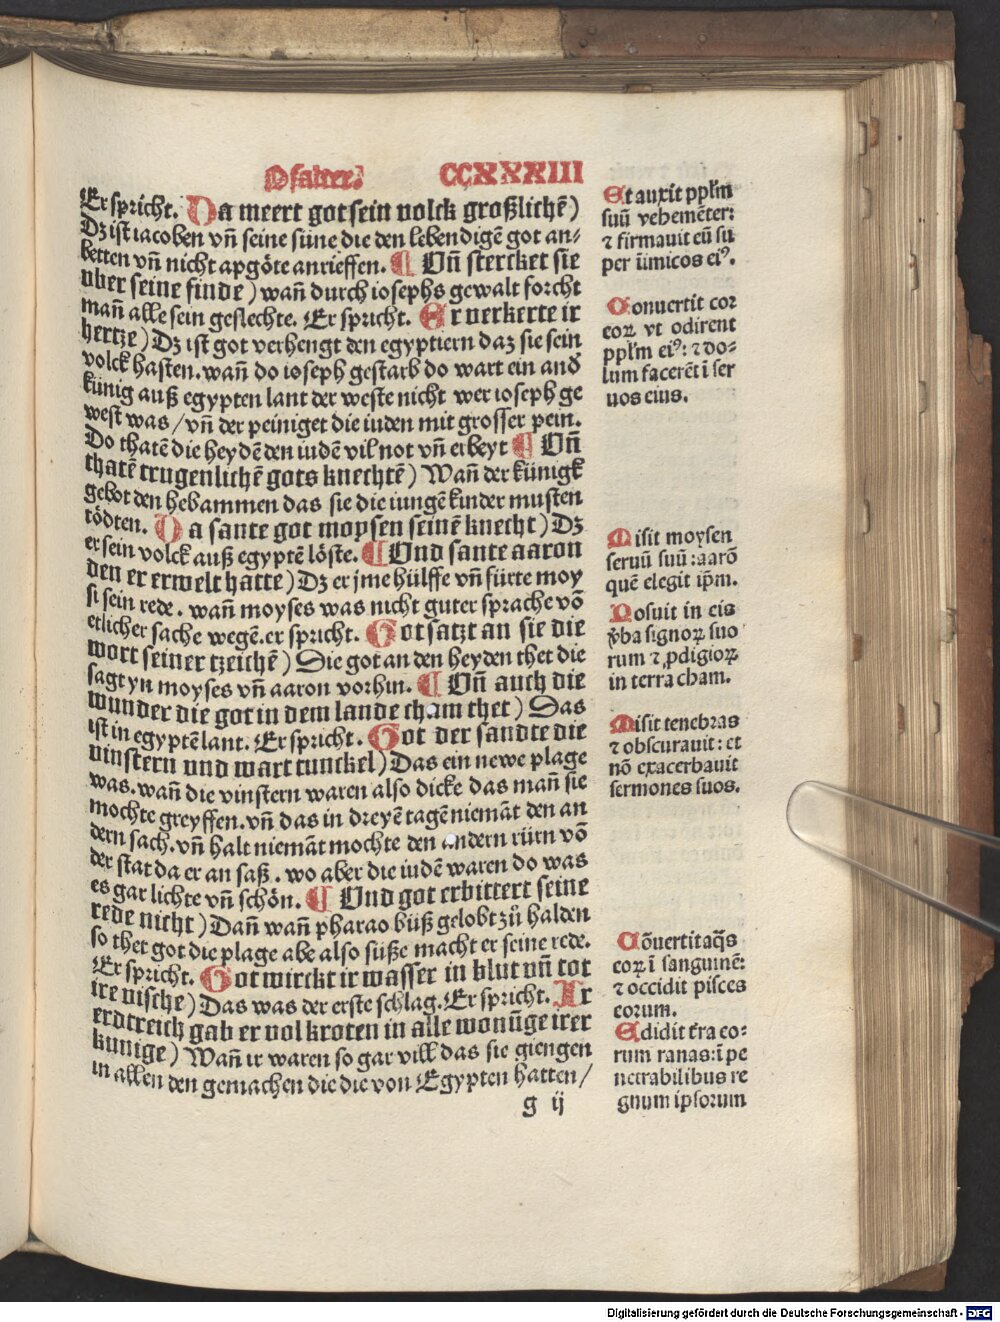 Psalter. CCXXXIII
Er spricht. Da meert got sein volck großlichē)
Dz ist iacoben vn̄ seine süne die den lebendigē got an⸗
betten vn̄ nicht apgöte anrieffen. ¶ Vn̄ stercket sie
vber seine finde) wan̄ durch iosephs gewalt forcht
man̄ alle sein geslechte. Er spricht. Er verkerte ir
hertze) Dz ist got verhengt den egyptiern daz sie sein
volck hasten. wan̄ do ioseph gestarb do wart ein and̄
künig auß egypten lant der weste nicht wer ioseph ge
west was / vn̄ der peiniget die iuden mit grosser pein.
Do thatē die heydē den iudē vil not vn̄ erbeyt ¶ Vn̄
thatē trugenlichē gots knechtē) Wan̄ der künigk
gebot den hebammen das sie die iungē kinder musten
tödten. Da sante got moysen seinē knecht) Dz
er sein volck auß egyptē löste. ¶ Vnd sante aaron
den er erwelt hatte) Dz er jme hülffe vn̄ fürte moy
si sein rede. wan̄ moyses was nicht guter sprache vō
etlicher sache wegē. er spricht. Got satzt an sie die
wort seiner tzeichē) Die got an den heyden thet die
sagt yn moyses vn̄ aaron vorhin. ¶ Vn̄ auch die
wunder die got in dem lande cham thet) Das
ist in egyptē lant. Er spricht. Got der sandte die
vinstern vnd wart tunckel) Das ein newe plage
was. wan̄ die vinstern waren also dicke das man̄ sie
mochte greyffen. vn̄ das in dreyē tagē niemāt den an
dern sach. vn̄ halt niemāt mochte den andern rürn vō
der stat da er an saß. wo aber die iudē waren do was
es gar lichte vn̄ schön. ¶ Vnd got erbittert seine
rede nicht) Dan̄ wan̄ pharao büß gelobt zü halden
so thet got die plage abe also süße macht er seine rede.
Er spricht. Got wirckt ir wasser in blut vn̄ tot
ire vische) Das was der erste schlag. Er spricht. Ir
erdtreich gab er vol kroten in alle wonūge irer
kunige) Wan̄ ir waren so gar vill das sie giengen
in allen den gemachen die die von Egypten hatten /
g ij
Et auxit pplm̄
suū vehemēter:
⁊ firmauit eū su
per īimicos eiꝰ.
Conuertit cor
eoꝝ vt odirent
pplm̄ eiꝰ: ⁊ do⸗
lum facerēt ī ser
uos eius.
Misit moysen
seruū suū: aarō
quē elegit ip̄m.
Posuit in eis
v̄ba signoꝝ suo
rum ⁊ ꝓdigioꝝ
in terra cham.
Misit tenebras
⁊ obscurauit: et
nō exacerbauit
sermones suos.
Cōuertit aq̄s
eoꝝ ī sanguinē:
⁊ occidit pisces
eorum.
Edidit t̄ra eo:
rum ranas: ī pe
netrabilibus re
gnum ipsorum
Digitalisierung gefördert durch die Deutsche Forschungsgemeinschaft - DFG